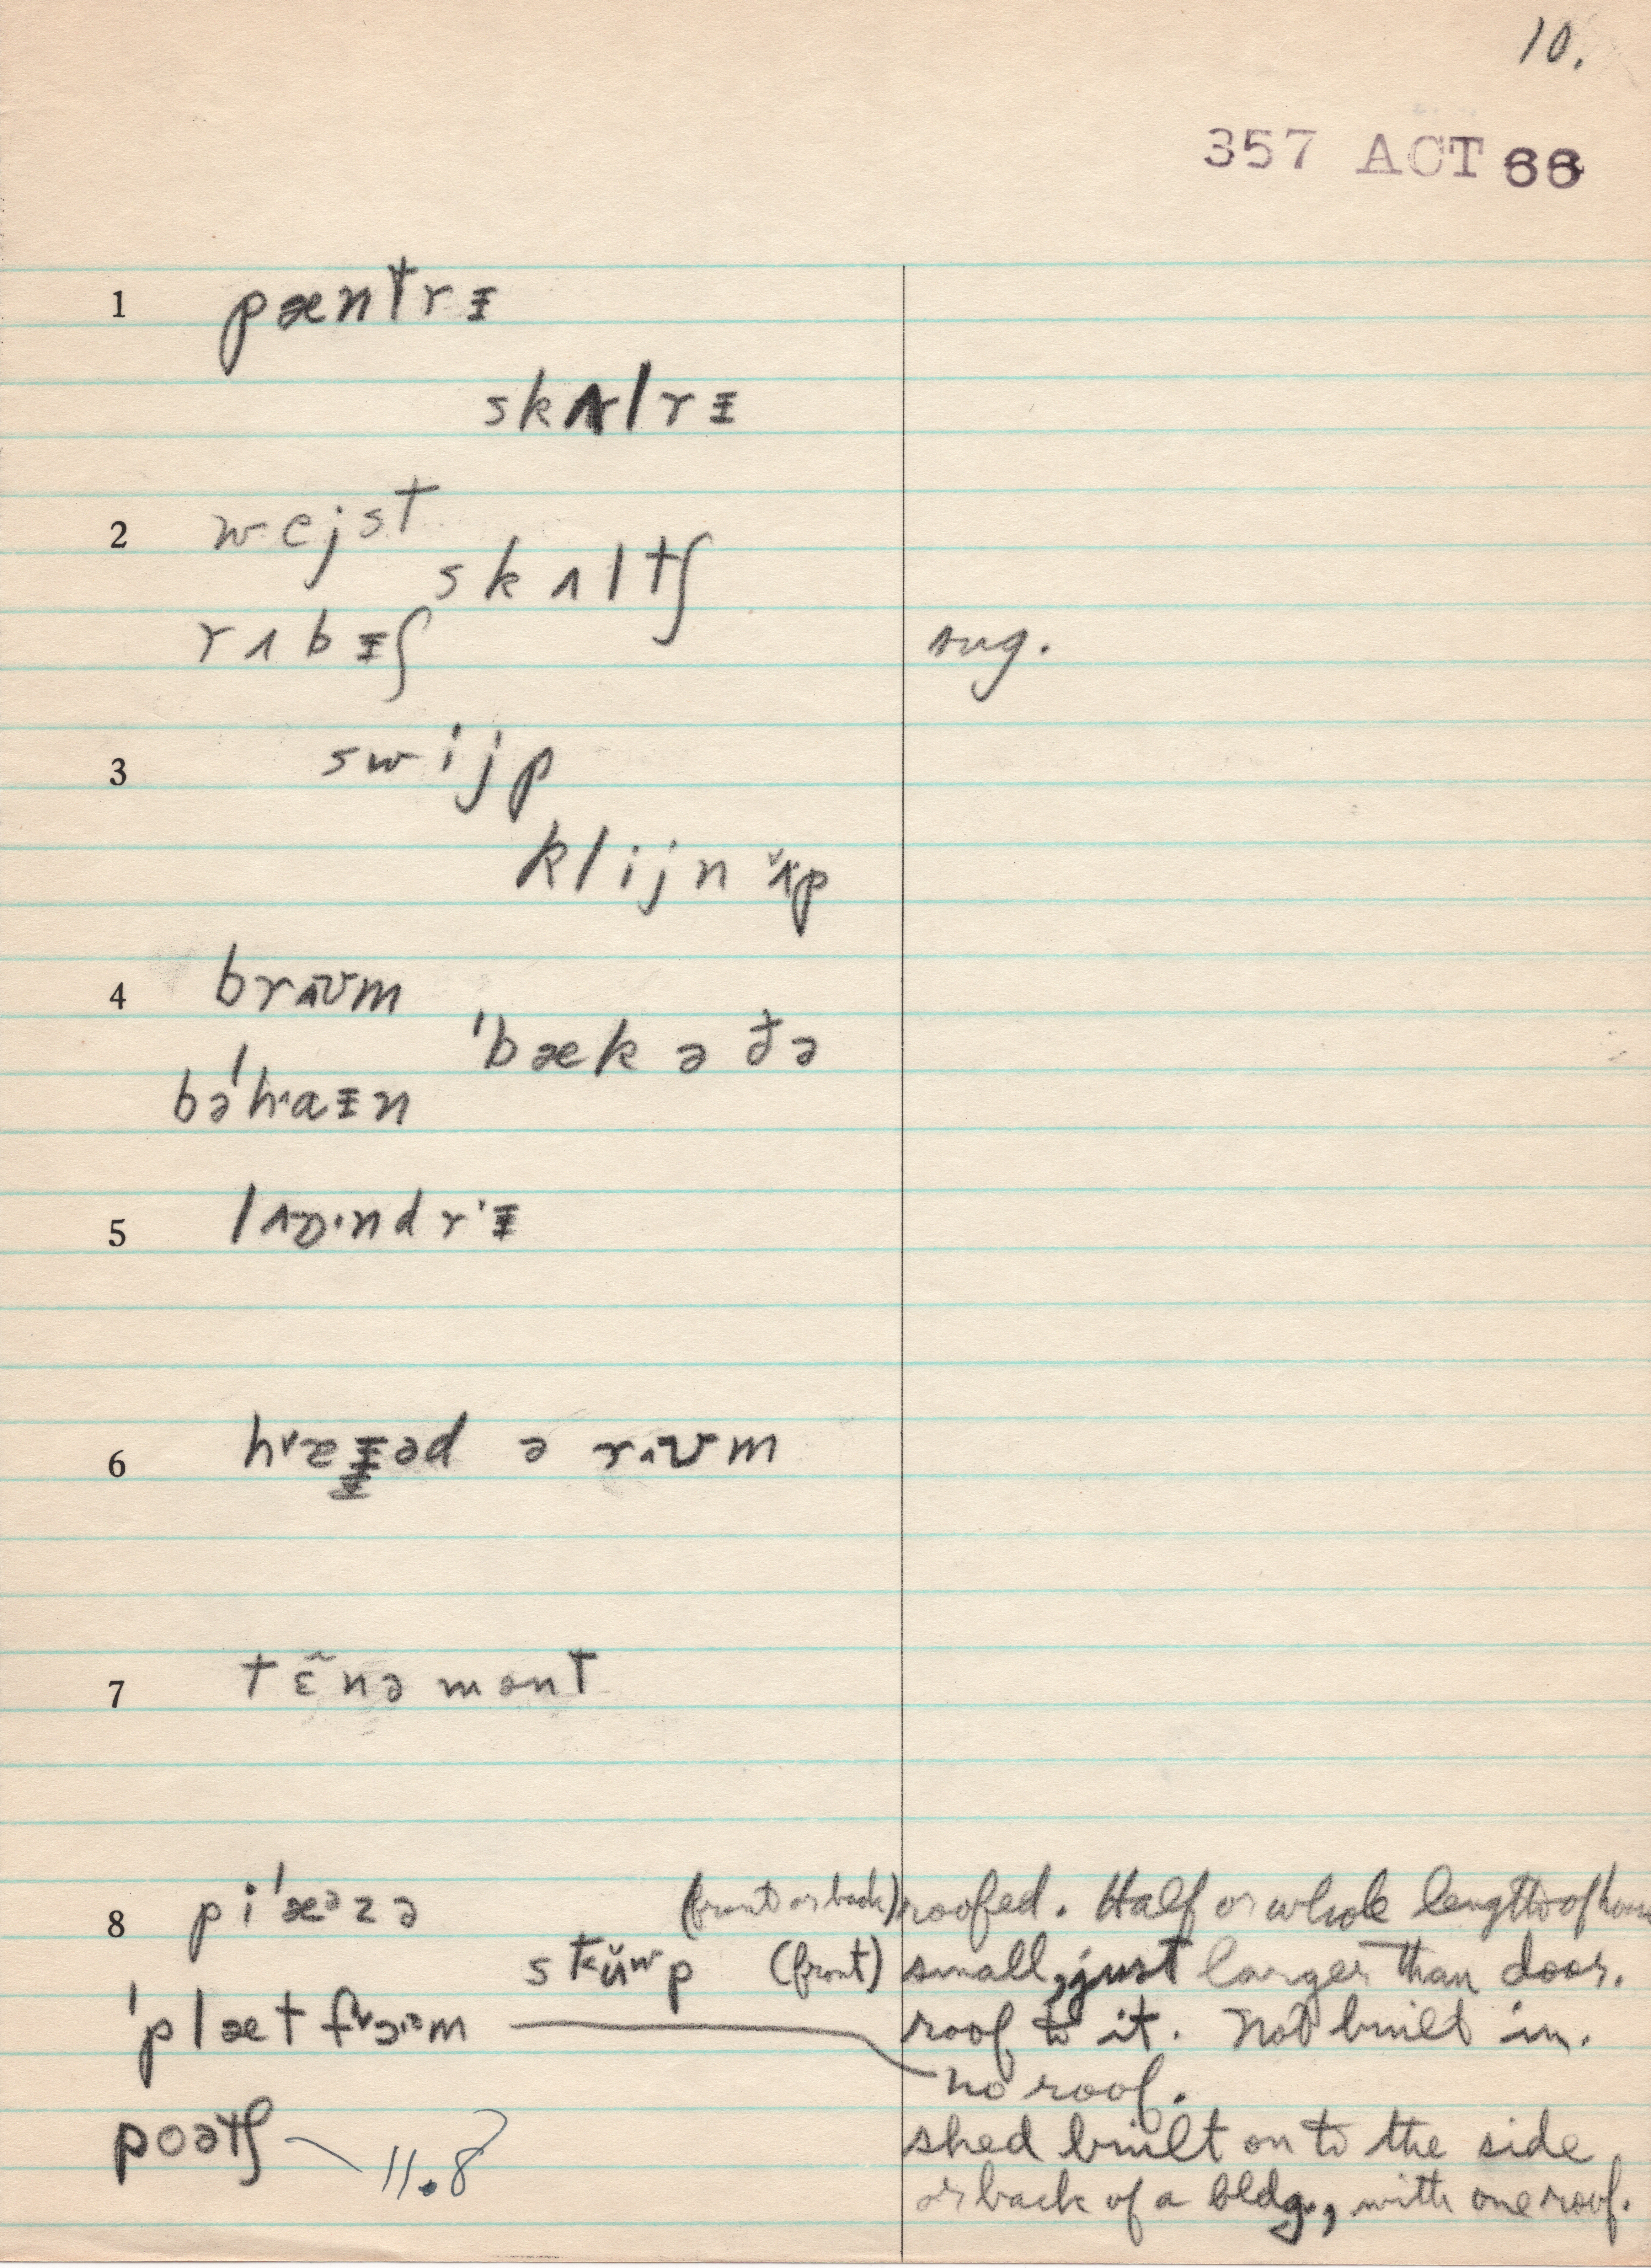 10.
357 ACT 66
1 pæntrᵻ
skʌlrᵻ
2 wejst
skʌltʃ
rʌbᵻʃ sug.
3 swijp
klijn ʌ̌p
4 brʌʊm
ˈbæk ə ðə
bəˈhaᵻn
5 lɒ·ndrᵻ
6 ə rʌʊm
7 tɛ̃nəmənt
8 piˈæᵊzə (front or back) roofed. Half or whole length of house
(front) small, just larger than door.
roof to it. Not built in.
no roof.
poətʃ 11.8 shed built on to the side
or back of a bldg., with one roof.